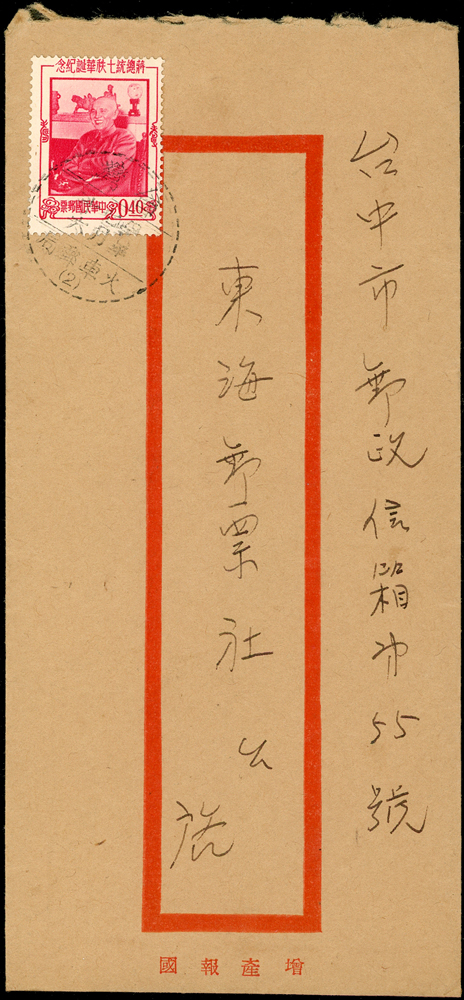 台中市郵政信箱第55號
東海郵票社 公啟
蔣總統七秩華誕紀念
中華民國郵票 0.40
火車郵局
(2)
增產報國